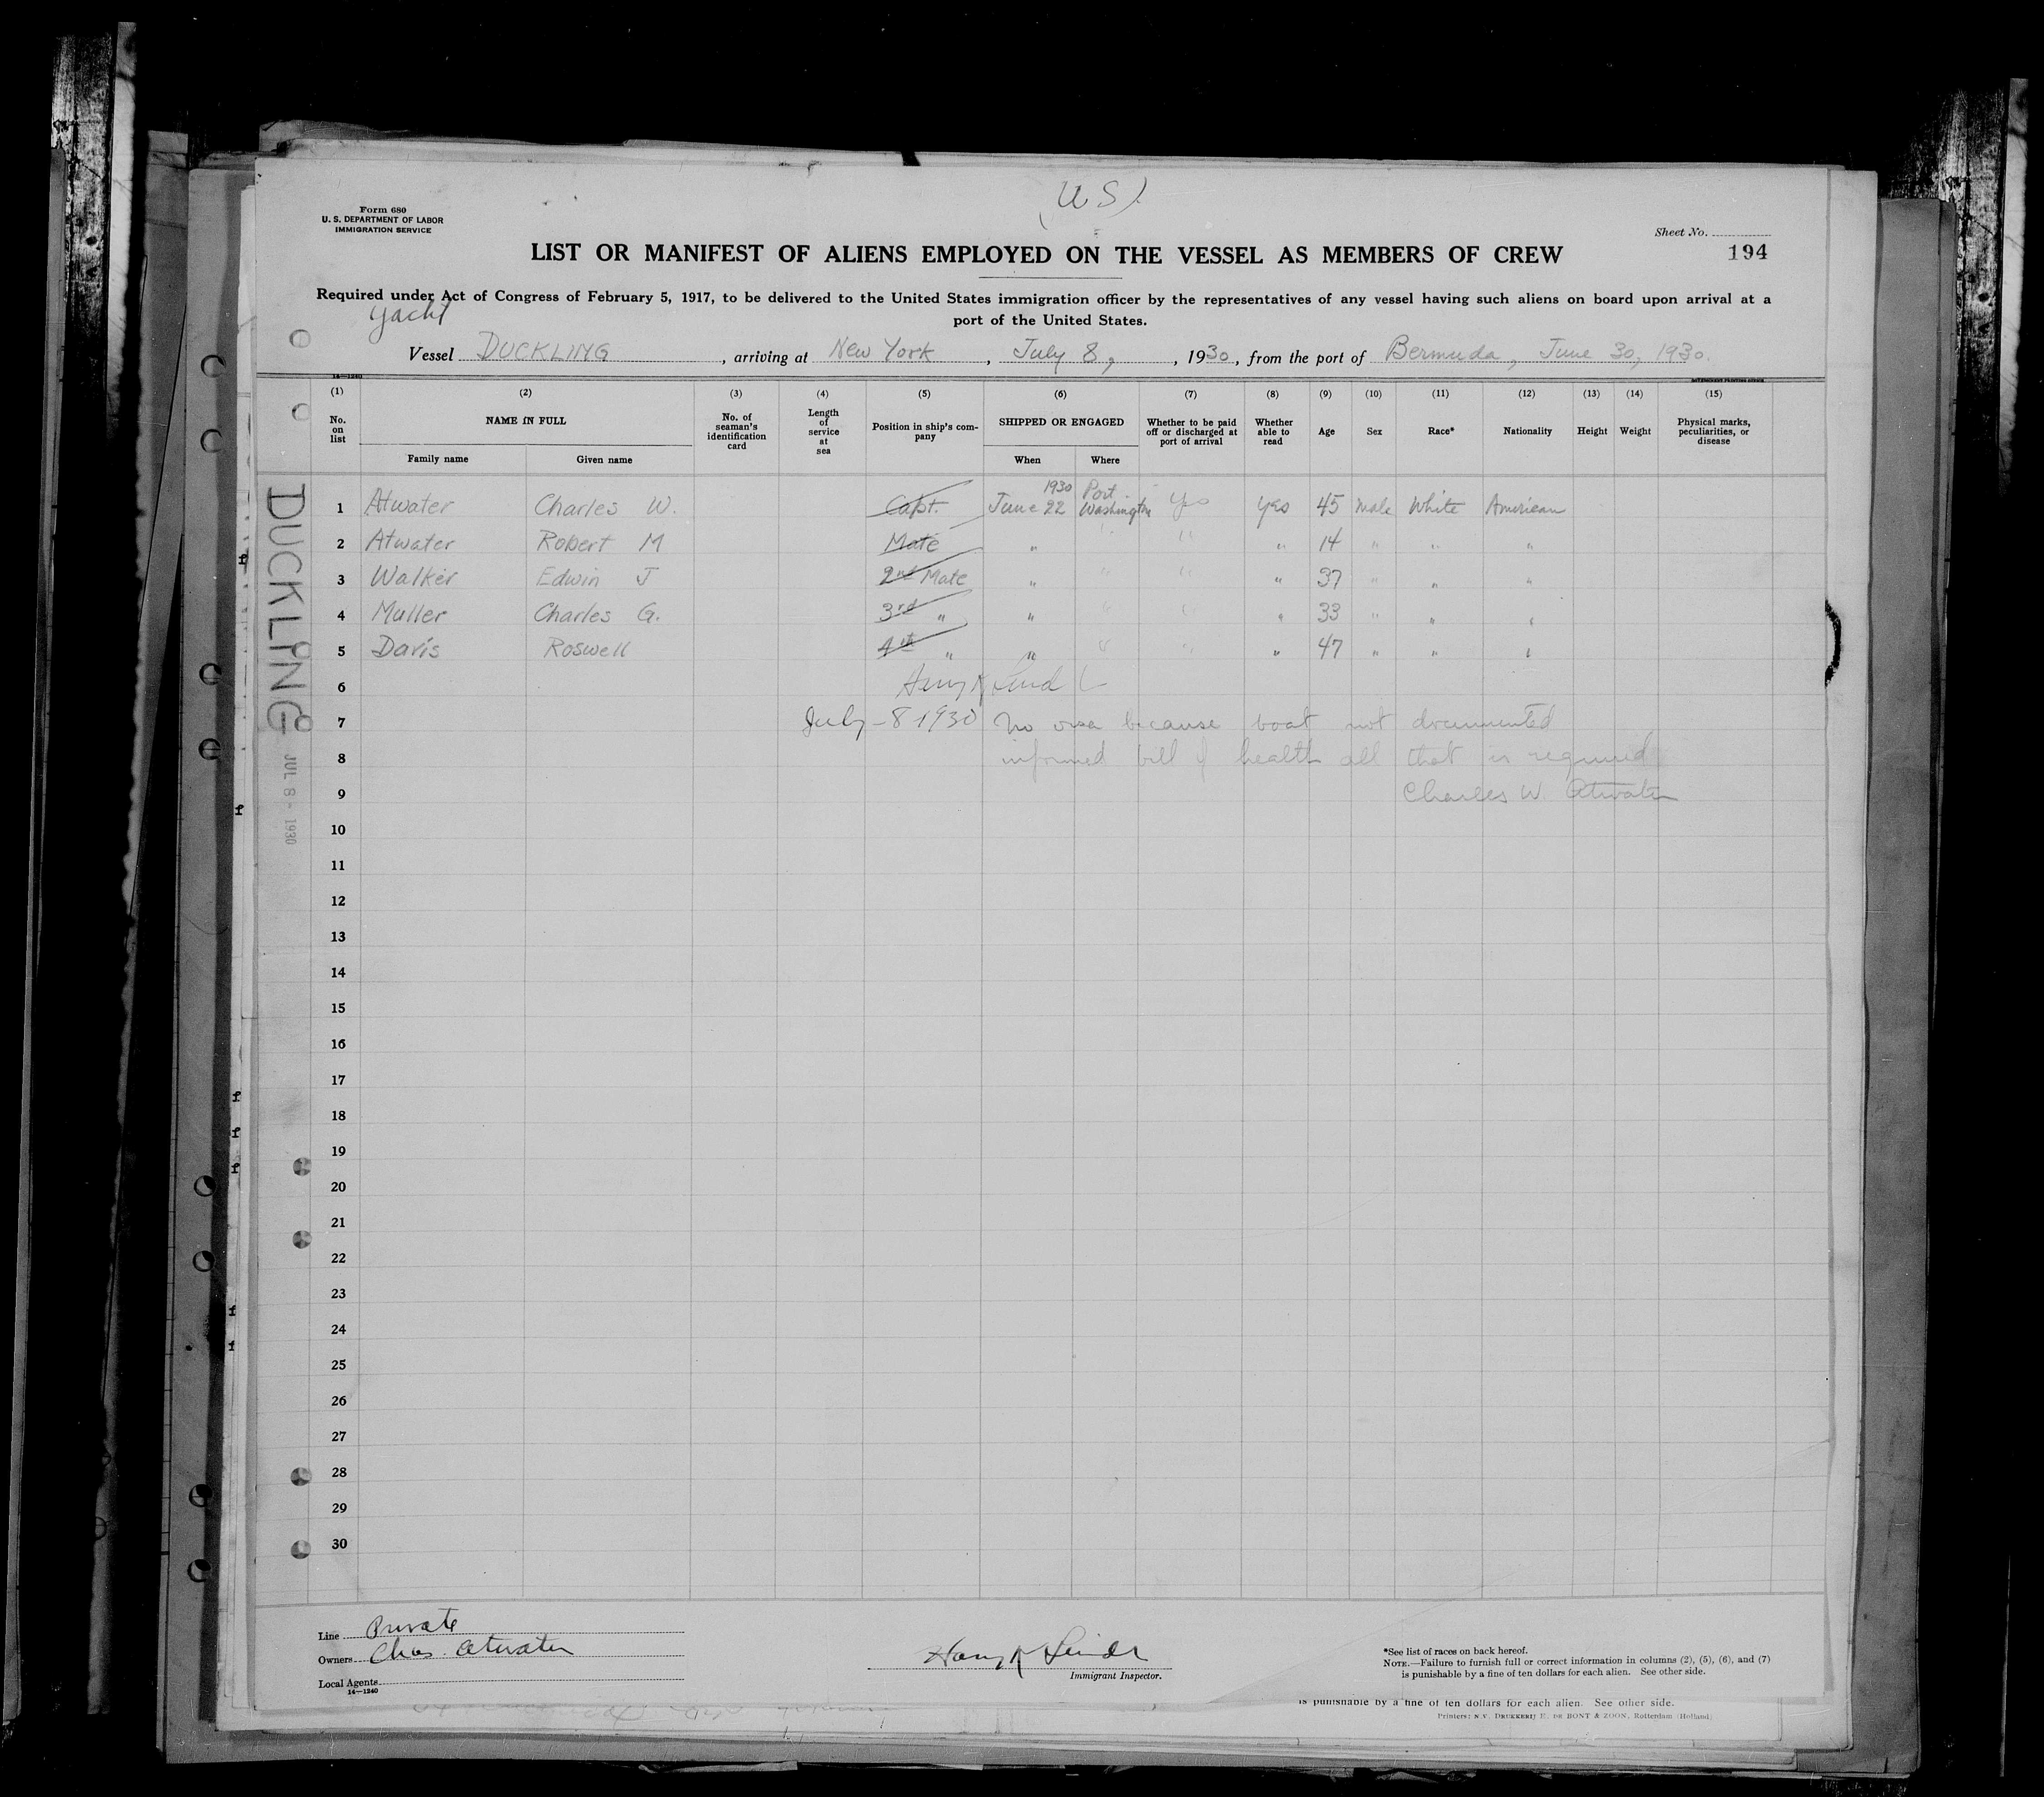 (U S)
Form 680
U. S. DEPARTMENT OF LABOR
IMMIGRATION SERVICE
Sheet No.
194
LIST OR MANIFEST OF ALIENS EMPLOYED ON THE VESSEL AS MEMBERS OF CREW
Required under Act of Congress of February 5, 1917, to be delivered to the United States immigration officer by the representatives of any vessel having such aliens on board upon arrival at a
port of the United States.
Yacht
Vessel DUCKLING, arriving at New York, July 8, 1930, from the port of Bermuda, June 30, 1930.
14—1240
(1) (2) (3) (4) (5) (6) (7) (8) (9) (10) (11) (12) (13) (14) (15)
No. on list NAME IN FULL No. of seaman's identification card Length of service at sea Position in ship's company SHIPPED OR ENGAGED Whether to be paid off or discharged at port of arrival Whether able to read Age Sex Race* Nationality Height Weight Physical marks, peculiarities, or disease
Family name Given name When Where
1 Atwater Charles W. Capt. 1930 June 22 Port Washington Yes Yes 45 Male White American
2 Atwater Robert M Mate " " " " 14 " " "
3 Walker Edwin J 2nd Mate " " " " 37 " " "
4 Muller Charles G. 3rd " " " " " 33 " " "
5 Davis Roswell 4th " " " " " 47 " " "
6
7 July - 8 1930 No visa because boat not documented
8 informed bill of health all that is required
9 Charles W. Atwater
10
11
12
13
14
15
16
17
18
19
20
21
22
23
24
25
26
27
28
29
30
DUCKLING
JUL 8 - 1930
Line Private
Owners Chas. Atwater
Local Agents
14—1240
Immigrant Inspector.
*See list of races on back hereof.
NOTE.—Failure to furnish full or correct information in columns (2), (5), (6), and (7)
is punishable by a fine of ten dollars for each alien. See other side.
is punishable by a fine of ten dollars for each alien. See other side.
Printers: N.V. DRUKKERIJ E. DE BONT & ZOON, Rotterdam (Holland)